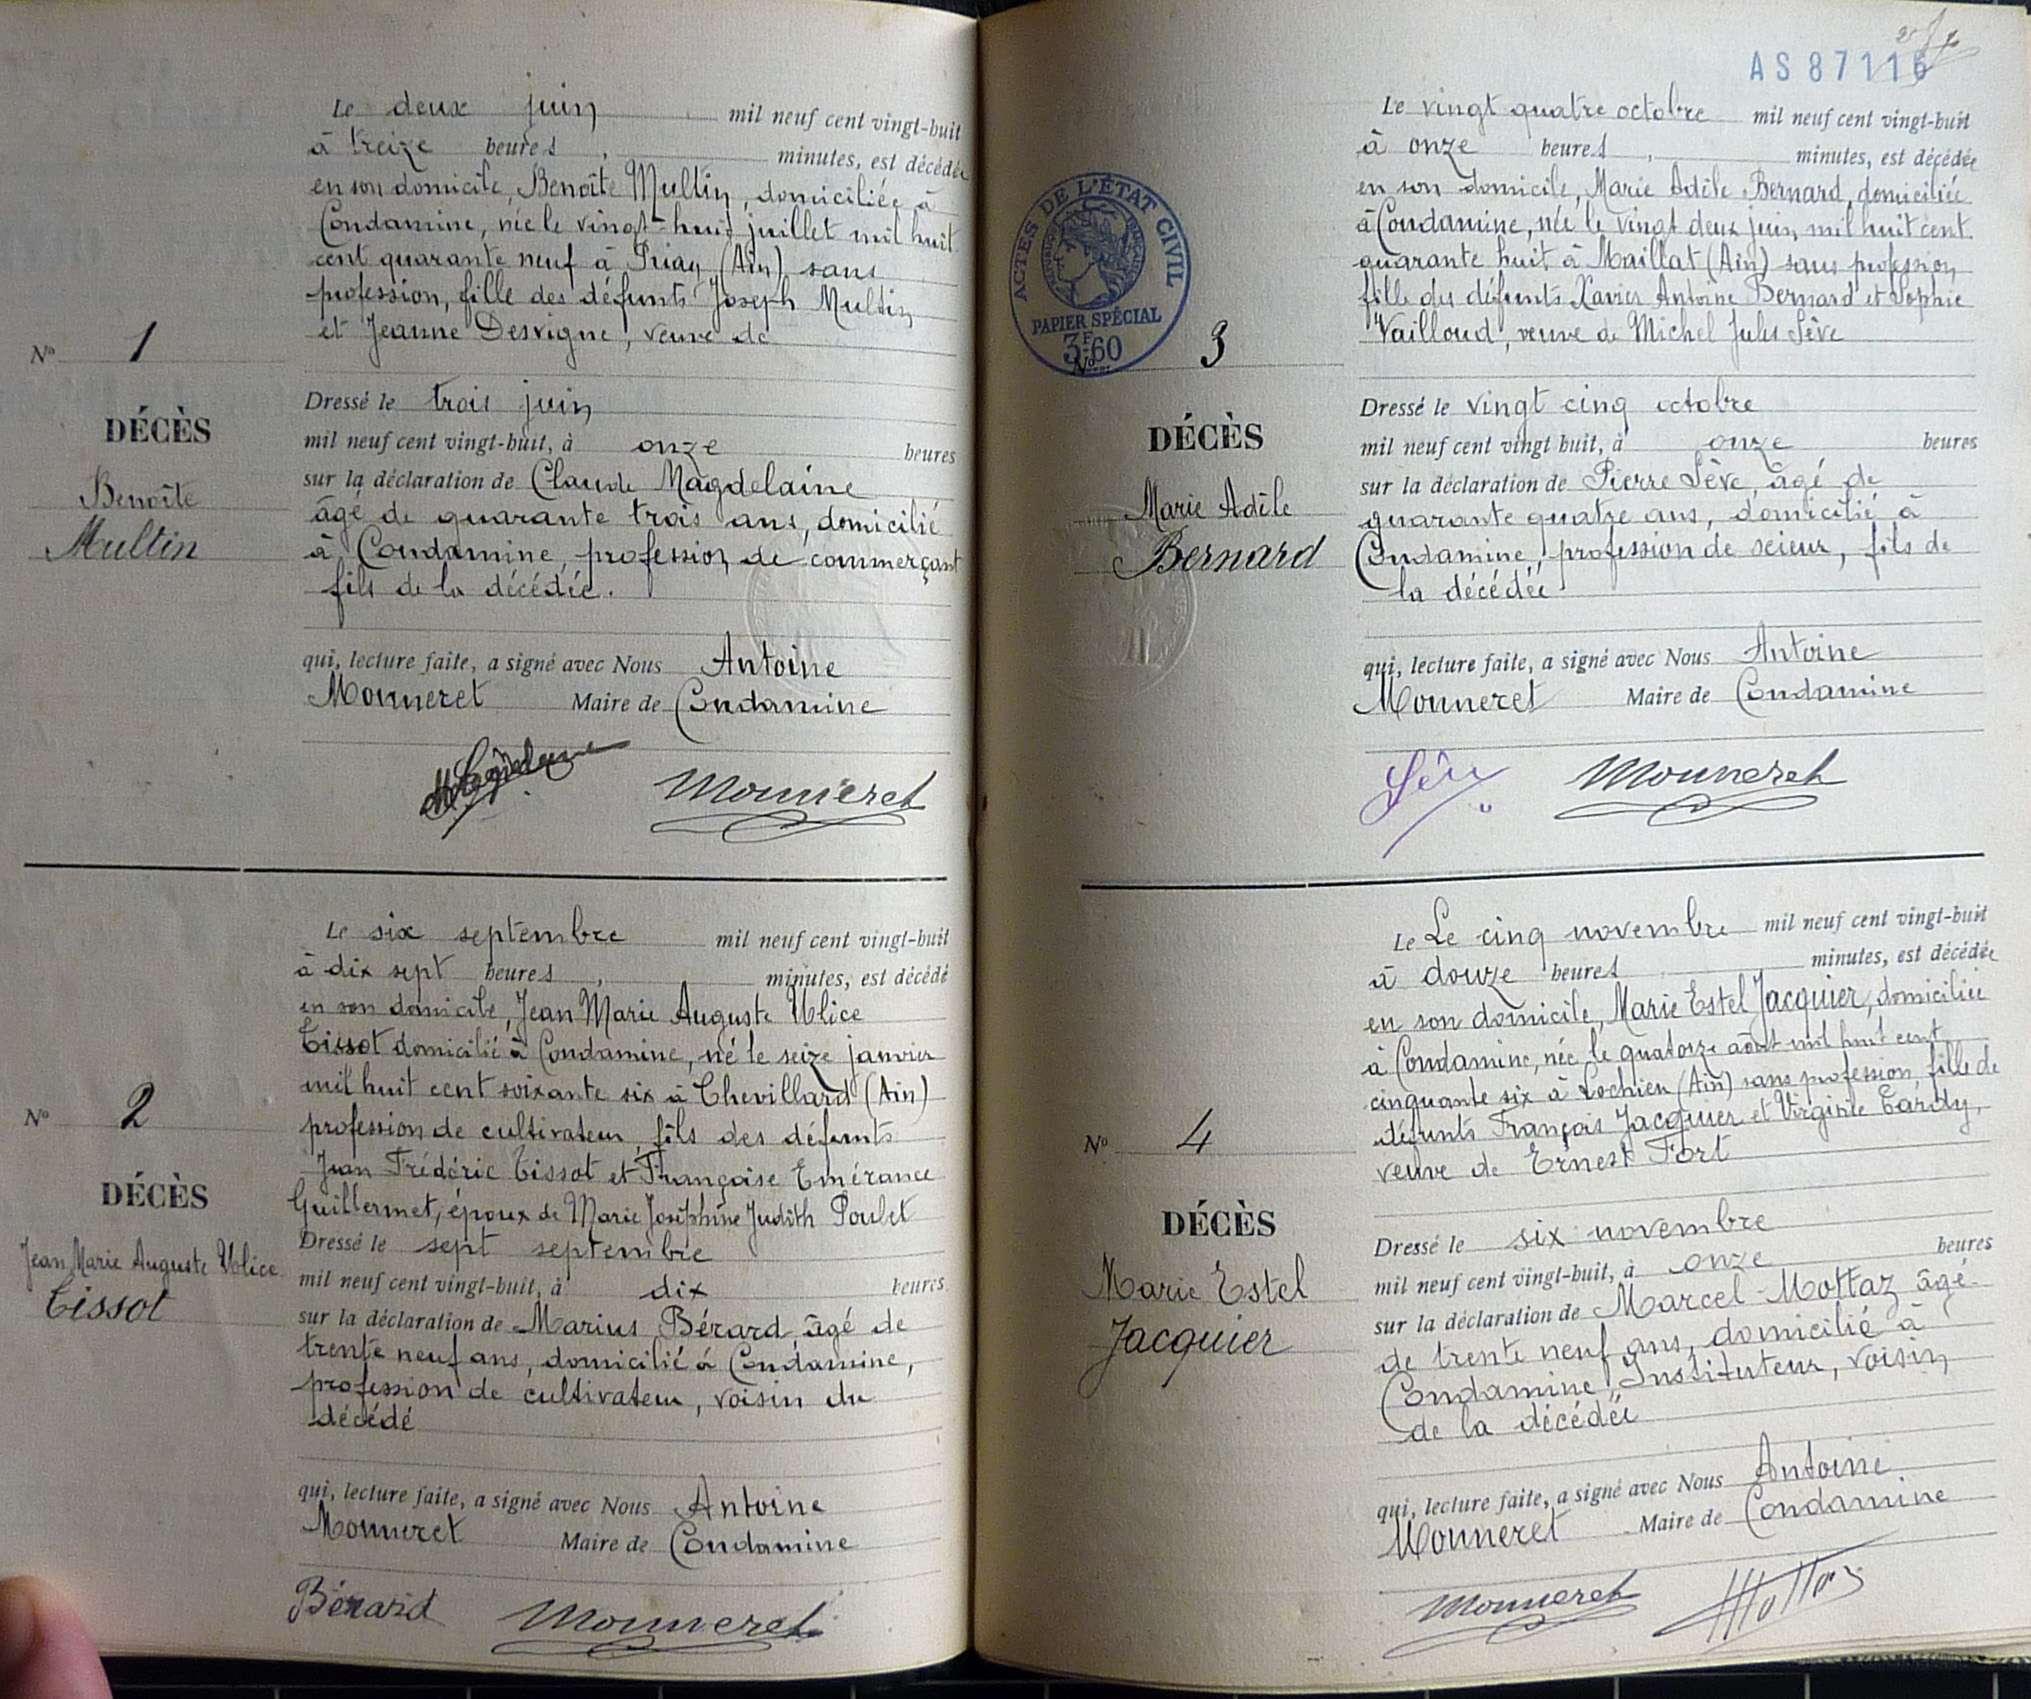 Le deux juin mil neuf cent vingt-huit
à treize heures, minutes, est décédée
en son domicile, Benoîte Multin, domiciliée à
Condamine, née le vingt-huit juillet mil huit
cent quarante neuf à Priay (Ain) sans
profession, fille des défunts Joseph Multin
et Jeanne Desvigne, veuve de
No 1
DÉCÈS
Benoîte
Multin
Dressé le trois juin
mil neuf cent vingt-huit, à onze heures
sur la déclaration de Claude Magdelaine
âgé de quarante trois ans, domicilié
à Condamine, profession de commerçant
fils de la décédée.
qui, lecture faite, a signé avec Nous Antoine
Monneret Maire de Condamine
Monneret
Le six septembre mil neuf cent vingt-huit
à dix sept heures, minutes, est décédé
en son domicile, Jean Marie Auguste Ulice
Tissot domicilié à Condamine, né le seize janvier
mil huit cent soixante six à Chevillard (Ain)
profession de cultivateur, fils des défunts
Jean Frédéric Tissot et Françoise Emérance
Guillermet, époux de Marie Joséphine Judith Poulet
No 2
DÉCÈS
Jean Marie Auguste Ulice
Tissot
Dressé le sept septembre
mil neuf cent vingt-huit, à dix heures
sur la déclaration de Marius Bérard âgé de
trente neuf ans, domicilié à Condamine,
profession de cultivateur, voisin du
décédé
qui, lecture faite, a signé avec Nous Antoine
Monneret Maire de Condamine
Bérard Monneret
AS 87116
ACTES DE L'ÉTAT CIVIL
PAPIER SPÉCIAL
3F60
Le vingt quatre octobre mil neuf cent vingt-huit
à onze heures, minutes, est décédée
en son domicile, Marie Adèle Bernard, domiciliée
à Condamine, née le vingt deux juin mil huit cent
quarante huit à Maillat (Ain) sans profession
fille des défunts Xavier Antoine Bernard et Sophie
Vailloud, veuve de Michel Jules Sève
No 3
DÉCÈS
Marie Adèle
Bernard
Dressé le vingt cinq octobre
mil neuf cent vingt huit, à onze heures
sur la déclaration de Pierre Sève, âgé de
quarante quatre ans, domicilié à
Condamine, profession de scieur, fils de
la décédée
qui, lecture faite, a signé avec Nous Antoine
Monneret Maire de Condamine
Sève Monneret
Le Le cinq novembre mil neuf cent vingt-huit
à douze heures minutes, est décédée
en son domicile, Marie Estel Jacquier, domiciliée
à Condamine, née le quatorze août mil huit cent
cinquante six à Lochieu (Ain) sans profession, fille de
défunts François Jacquier et Virginie Tardy,
veuve de Ernest Fort
No 4
DÉCÈS
Marie Estel
Jacquier
Dressé le six novembre
mil neuf cent vingt-huit, à onze heures
sur la déclaration de Marcel Mottaz âgé
de trente neuf ans, domicilié à
Condamine, Instituteur, voisin
de la décédée
qui, lecture faite, a signé avec Nous Antoine
Monneret Maire de Condamine
Monneret Mottaz